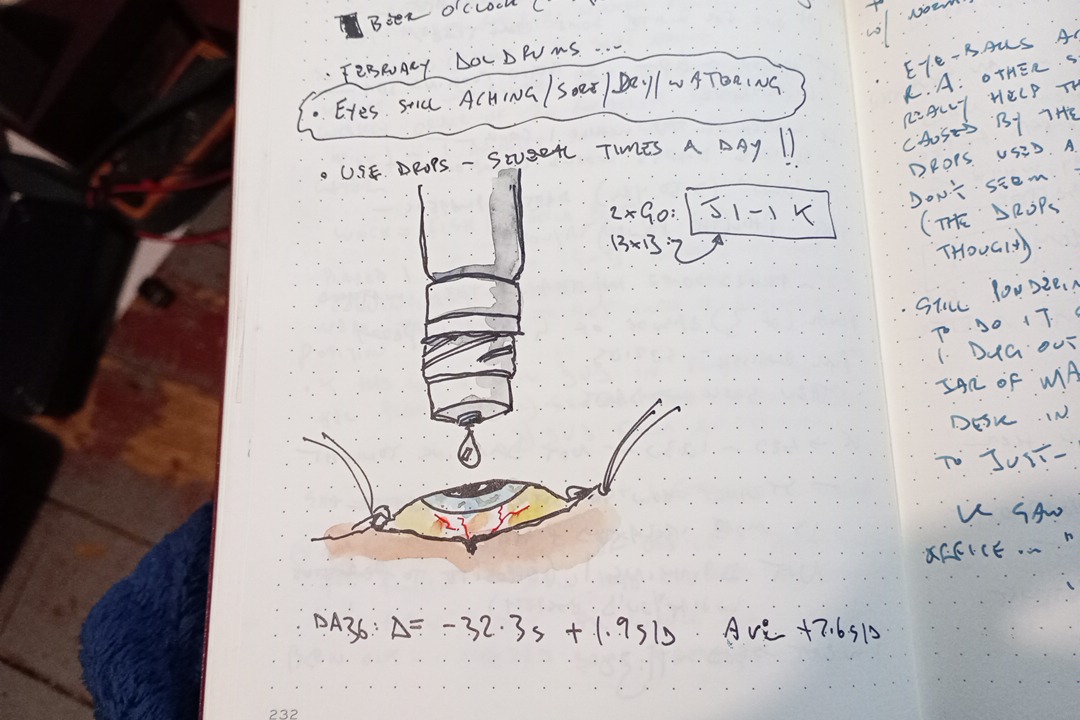 BEER O'CLOCK (
• FEBRUARY DOLDRUMS ...
• EYES STILL ACHING/SORE/DRY/WATERING
• USE DROPS – SEVERAL TIMES A DAY !!
2x90: J1-1K
13x13:
• DA36: Δ= -32.3s +1.9s/D Ave +2.6s/D
232
w/
• EYE-BALLS
R.A. OTHER
REALLY HELP
CAUSED BY THE
DROPS USED
DON'T SEEM
(THE DROPS
THOUGH).
• STILL PONDERIN
TO DO IT
I DUG OUT
JAR OF
DESK IN
TO JUST